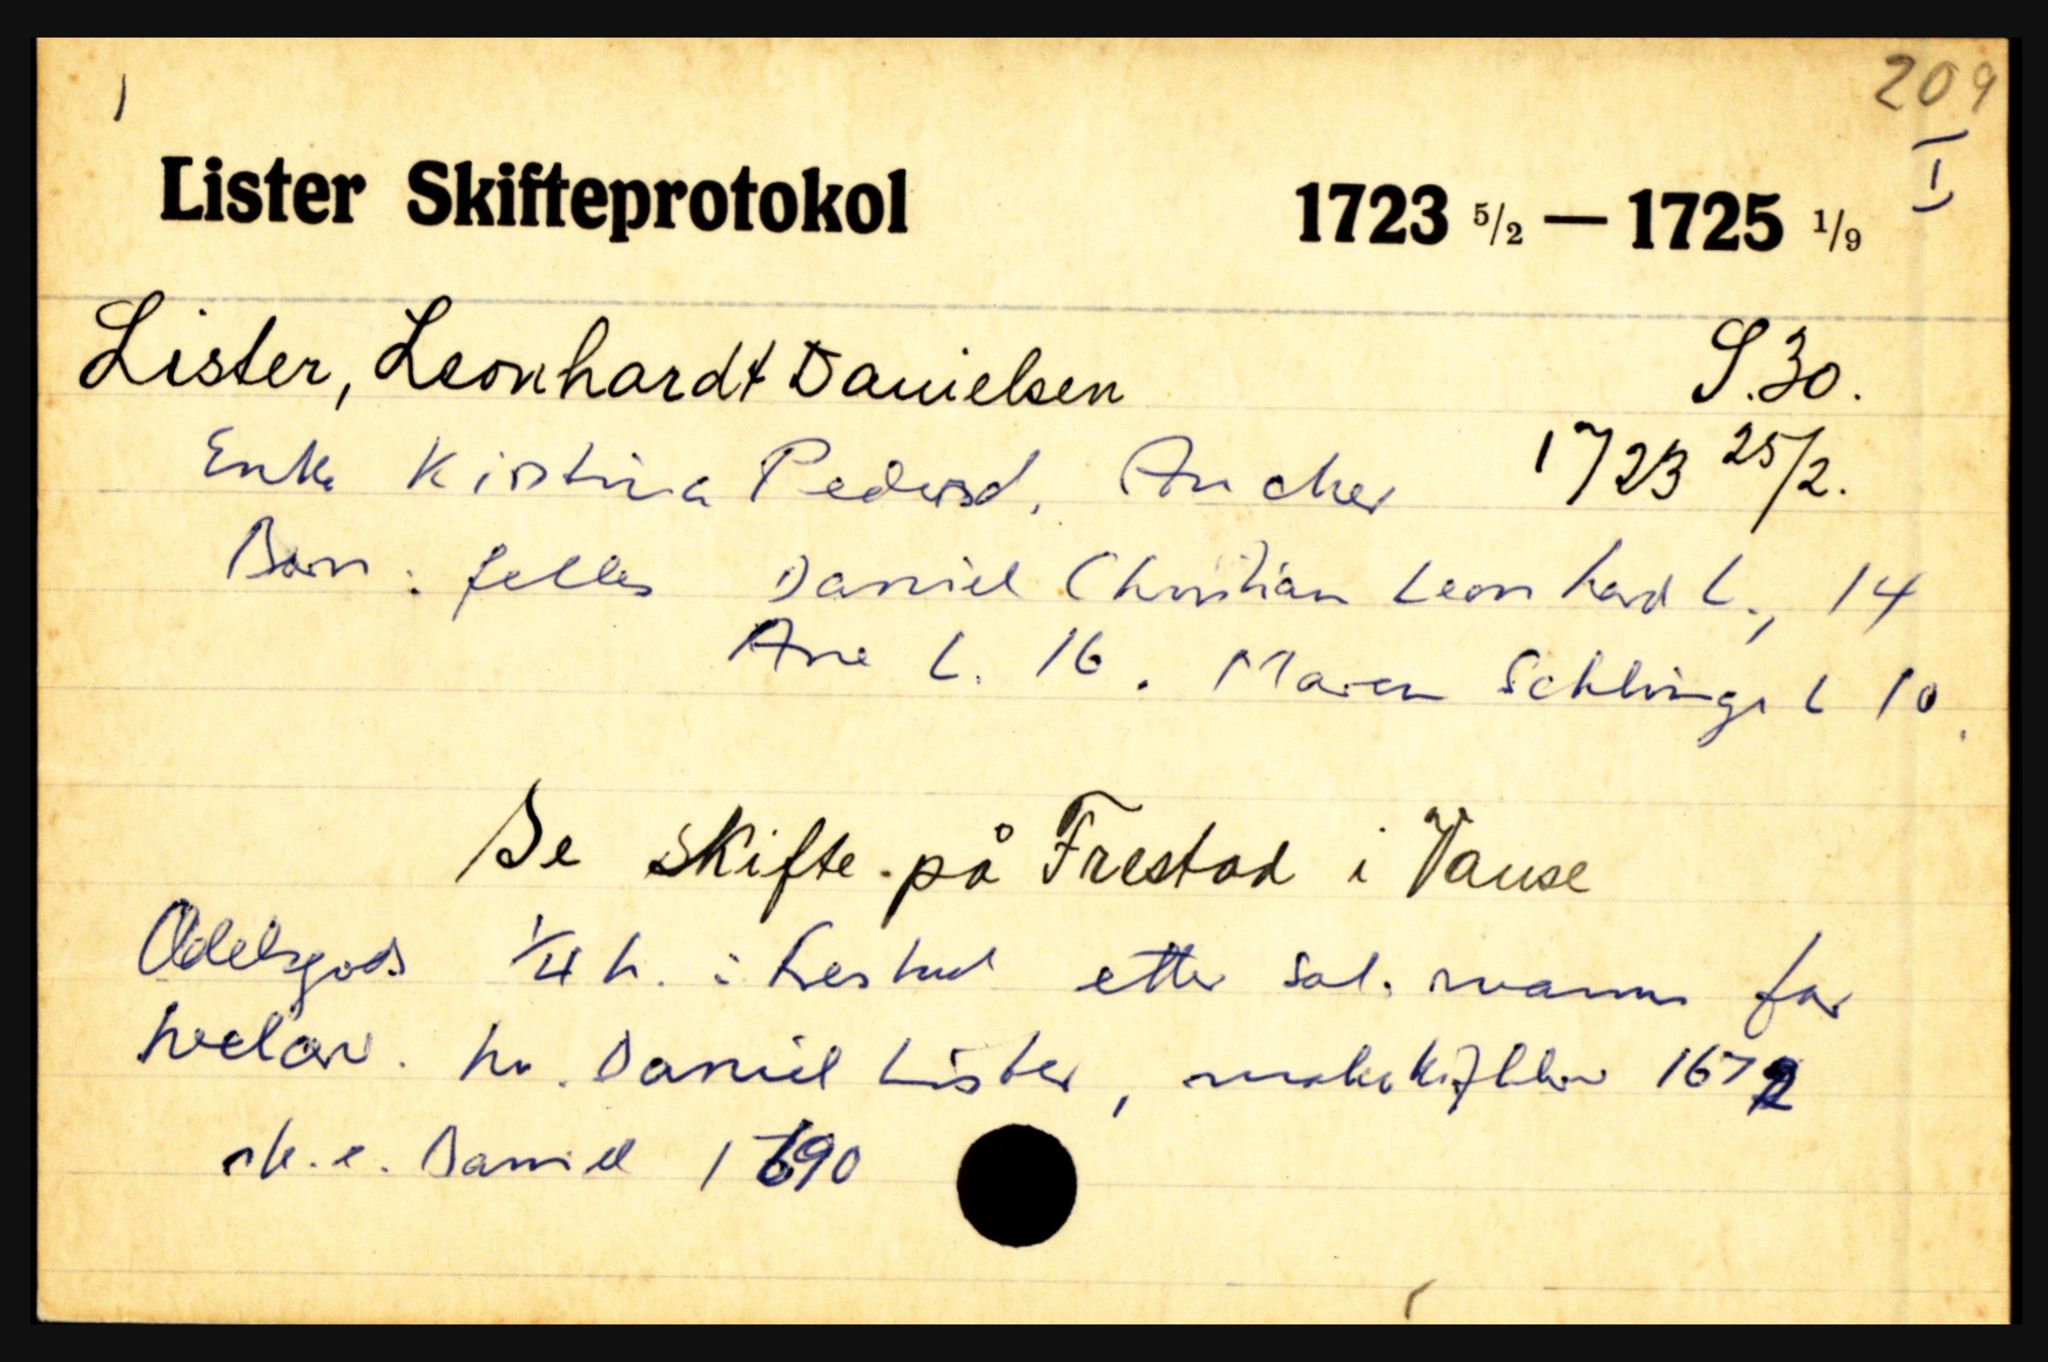 1
209
I
Lister Skifteprotokol 1723 5/2 — 1725 1/9
Lister, Leonhardt Danielsen S. 30.
Enke Kirstina Pedersd. Ancher 1723 25/2.
Barn: felles Daniel Christian Leonhard L., 14
Ane L. 16. Maren Schlinge L 10.
Se skifte på Frestad i Vanse
Odelsgods 1/4 h. i Frestad etter sal. manns far
velærv. hr. Daniel Lister, makeskifte 1672
sk. e. Daniel 1690